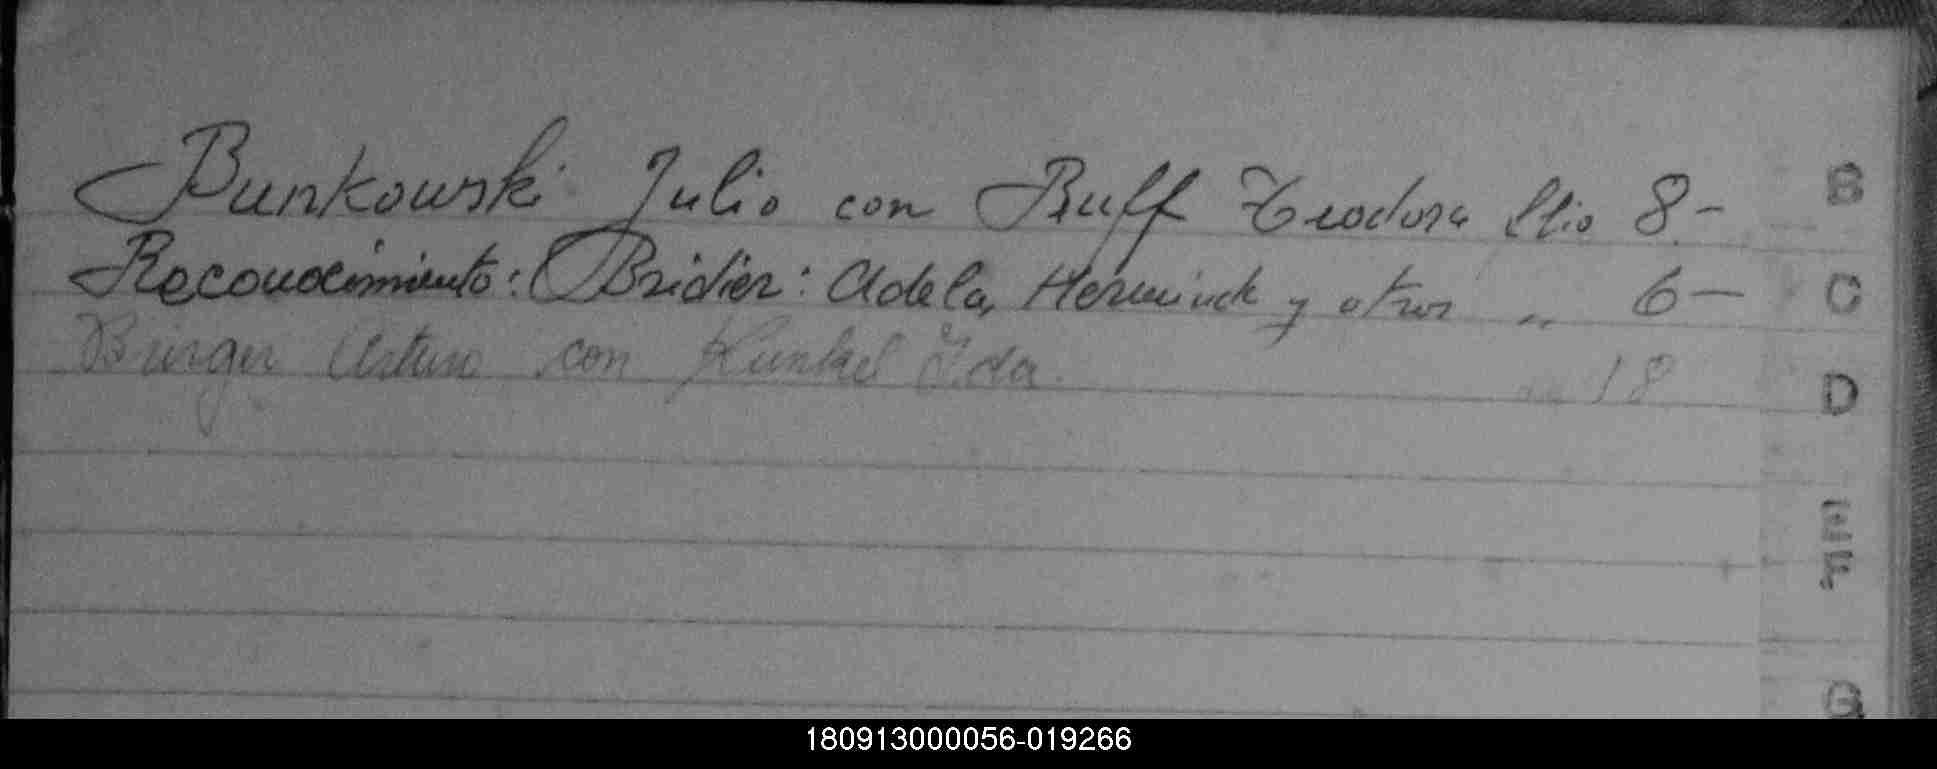 Bunkowski Julio con Buff Teodora flio 8-
Reconocimiento: Bridier: Adela, Hermind y otros " 6-
Burger Arturo con Kunkel Ida. 18
B
C
D
G
180913000056-019266